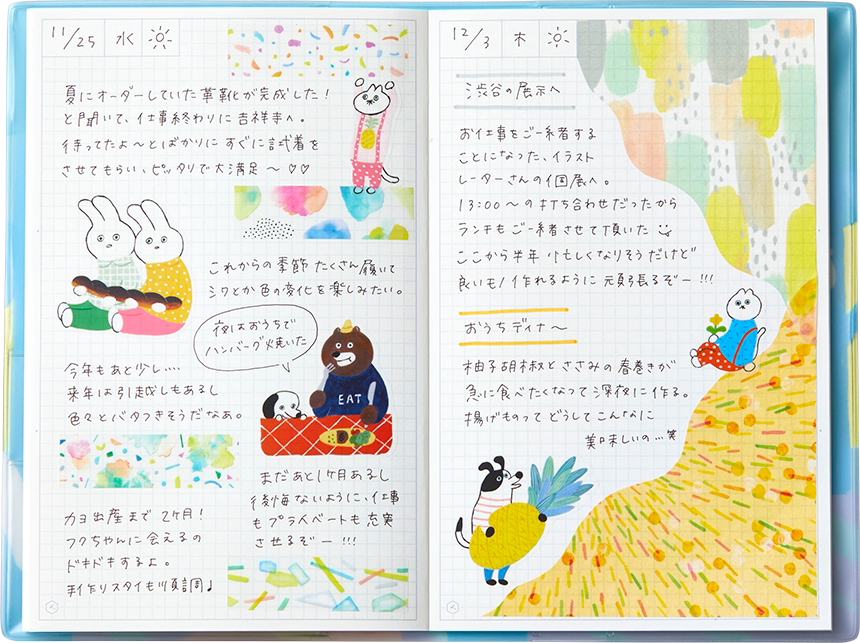 11/25 水
夏にオーダーしていた革靴が完成した！
と聞いて、仕事終わりに吉祥寺へ。
待ってたよ〜とばかりにすぐに試着を
させてもらい、ピッタリで大満足〜♡♡
これからの季節たくさん履いて
シワとか色の変化を楽しみたい。
夜はおうちで
ハンバーグ焼いた
EAT
今年もあと少し....
来年は引越しもあるし
色々とバタつきそうだなあ。
まだあと1ヶ月あるし
後悔ないように、仕事
もプライベートも充実
させるぞー!!!
カヨ出産まで2ヶ月！
フクちゃんに会えるの
ドキドキするよ。
手作りスタイも順調♪
12/3 木
渋谷の展示へ
お仕事をご一緒する
ことになった、イラスト
レーターさんの個展へ。
13:00〜の打ち合わせだったから
ランチもご一緒させて頂いた
ここから半年 忙しくなりそうだけど
良いもの作れるように頑張るぞー!!!
おうちディナ〜
柚子胡椒とささみの春巻きが
急に食べたくなって深夜に作る。
揚げものってどうしてこんなに
美味しいの...笑